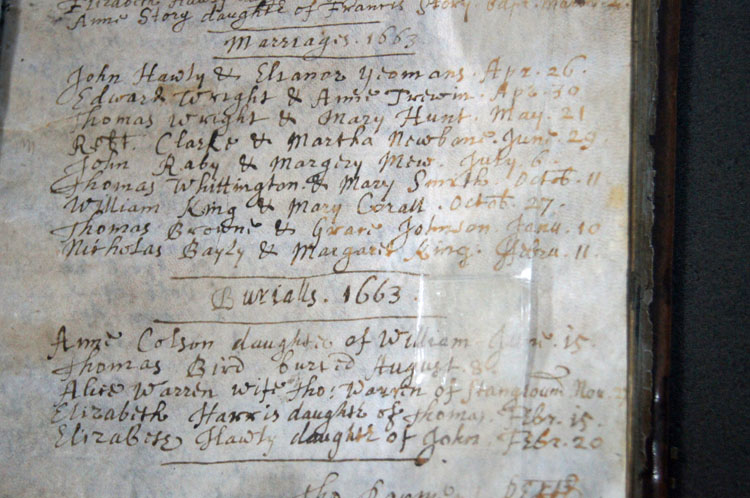 Anne Story daughter of Francis Story bapt.
Marriages. 1663
John Hawly & Elianor Yeomans. Apr. 26
Edward Wright & Anne Trewin. Apr. 30
Thomas Wright & Mary Hunt. May. 21
Robt. Clarke & Martha Newbone. June. 29
John Raby & Margery Mew. July. 6.
Thomas Whittington & Mary Smith Octob. 11
William King & Mary Corall. Octob. 27.
Thomas Browne & Grace Johnson Janu. 10
Nicholas Bayly & Margaret King. Febru. 11.
Burialls. 1663
Anne Colson daughter of William June. 15.
Thomas Bird buried August. 8.
Alice Warren wife Tho: Warren of Nov.
Elizabeth Harris daughter of Thomas. Febr. 15.
Elizabeth Hawly daughter of John. Febr. 20
the